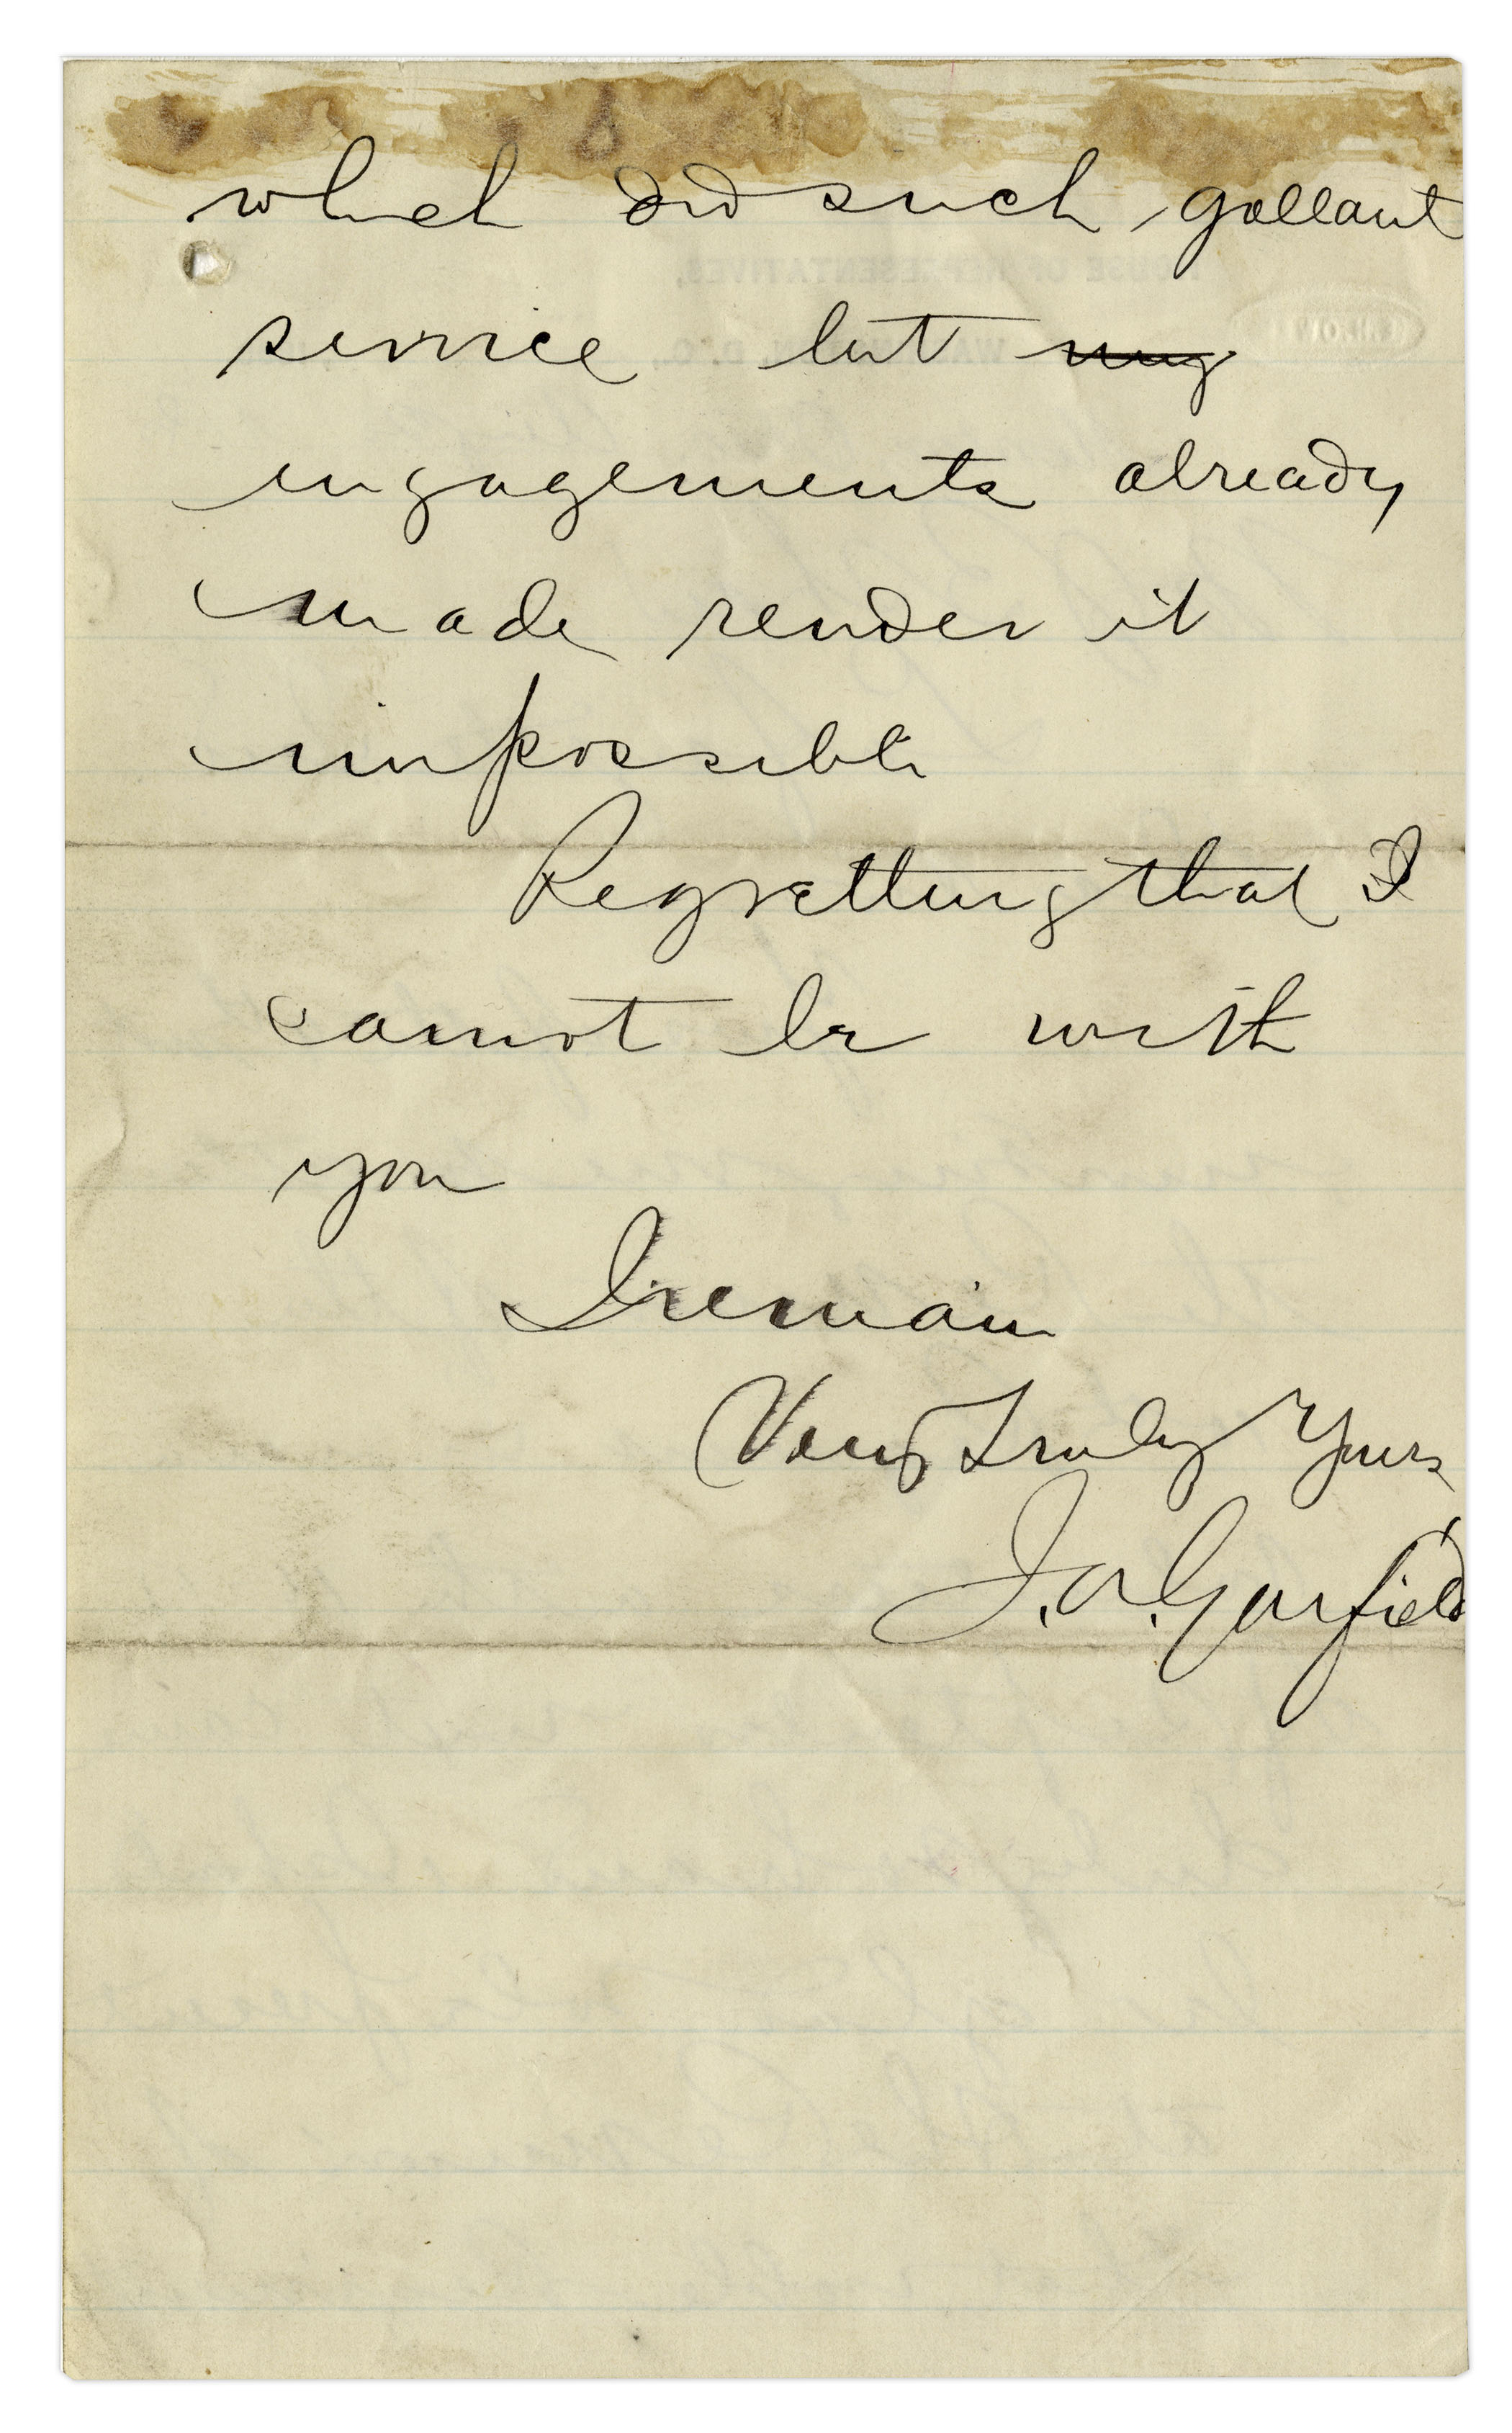 which did such gallant
service but my
engagements already
made render it
impossible
Regretting that I
cannot be with
you
I remain
Very Truly Yours
J. A. Garfield